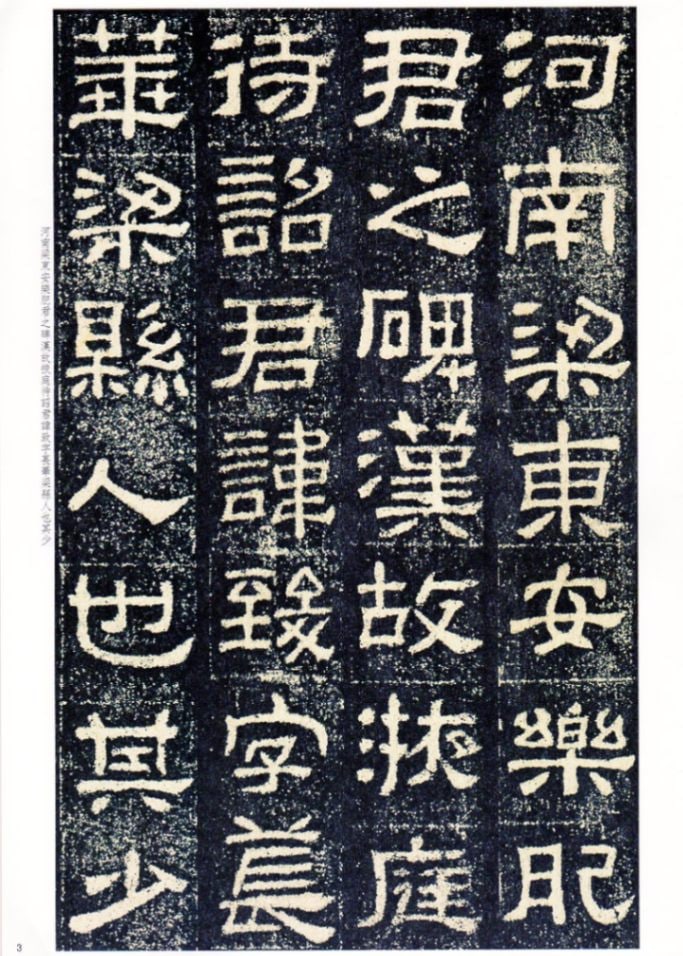 河南梁東安樂肥
君之碑漢故掖庭
待詔君諱致字萇
華梁縣人也其少
河南梁東安樂肥君之碑漢故掖庭待詔君諱致字萇華梁縣人也其少
3